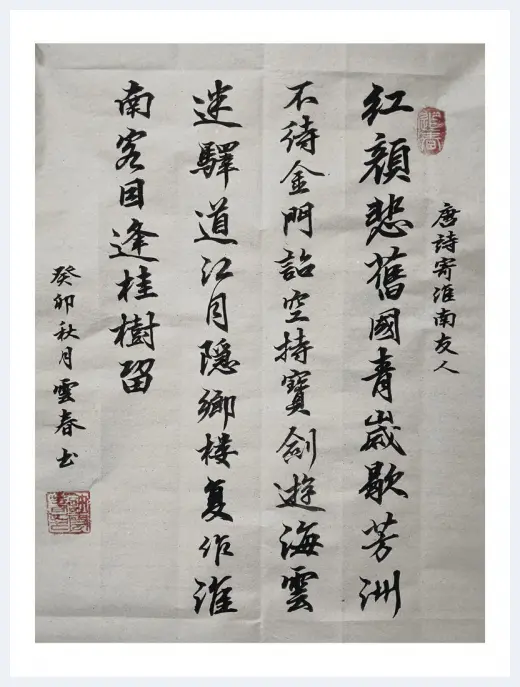 唐詩寄淮南友人
红顔悲舊國青嵗歇芳洲
不待金門詔空持寶劍遊海雲
迷驛道江月隱鄉楼复作淮
南客因逢桂樹留
癸卯秋月雲春书